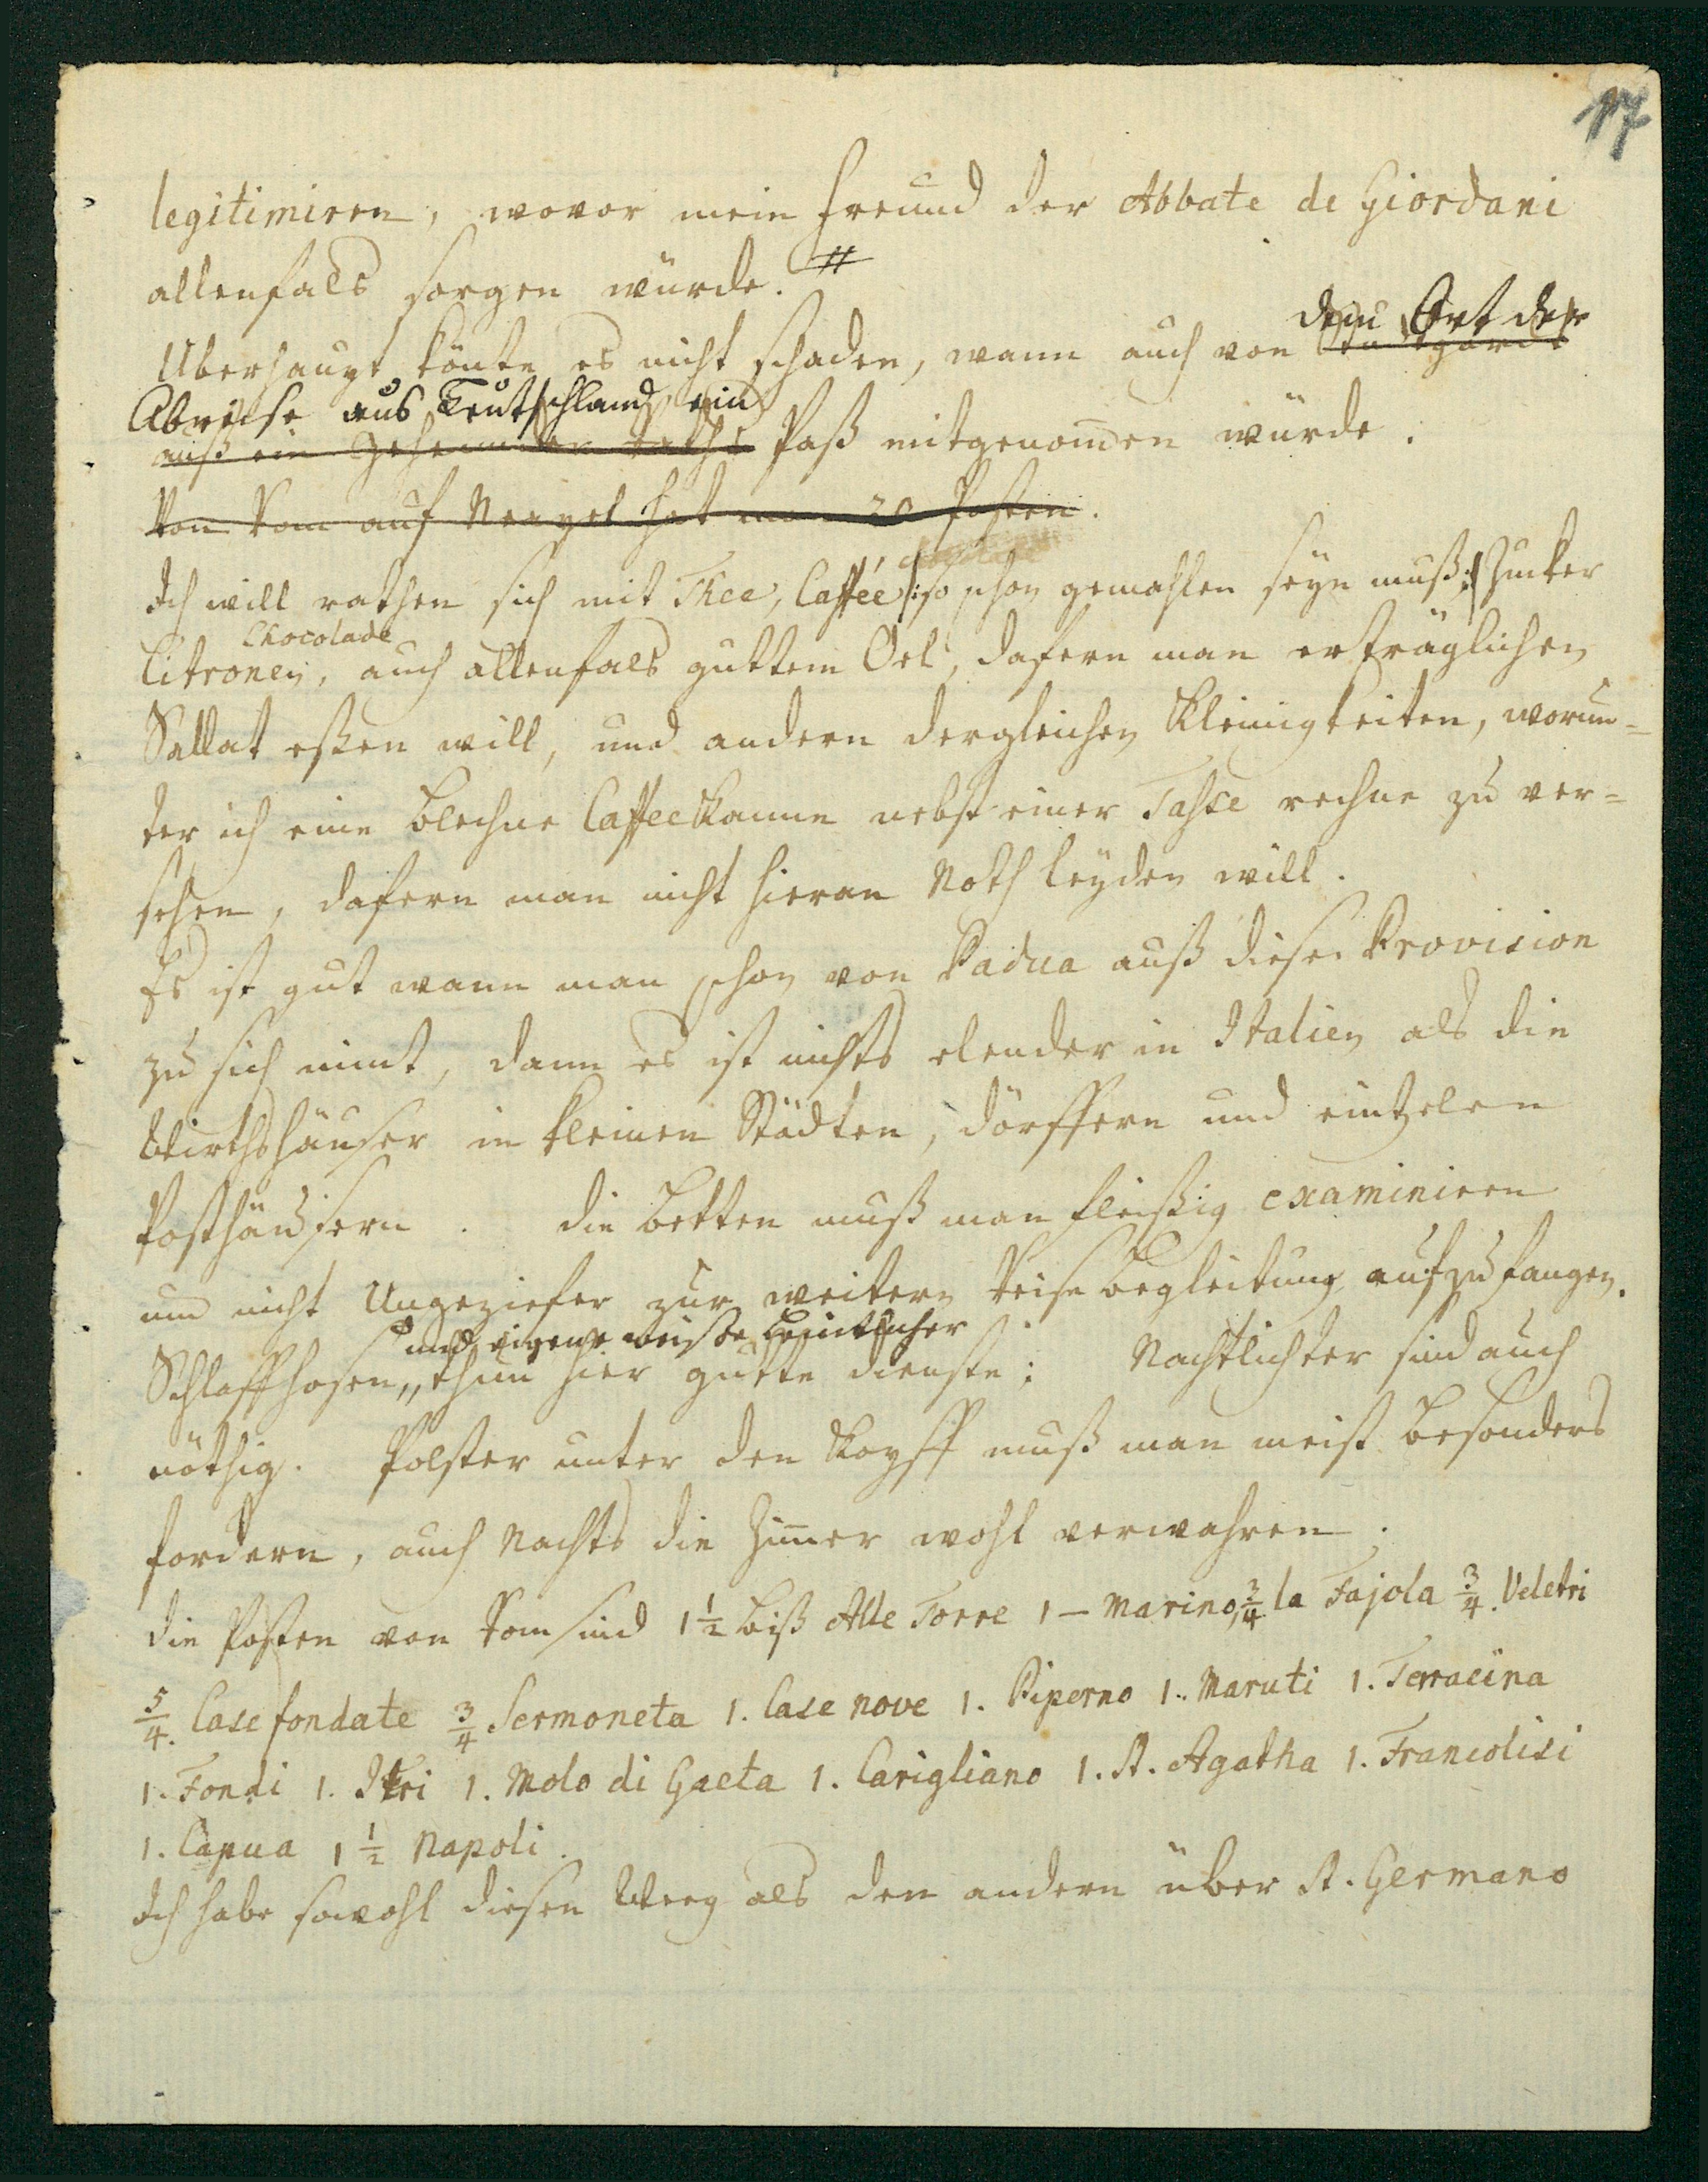 17
legitimiren, wovor mein Freund der Abbate de Giordani
allenfals sorgen würde. #
dem Ort der
Uberhaupt könte es nicht schaden, wann auch von Stuttgardt
Abreise aus Teutschland ein
auß ein Geheimder raths Paß mitgenom̅en würde.
Von Rom auf Neapel hat man 20 Posten.
Ich will rathen sich mit Thee, Caffée /: so schon gemahlen seÿn muß :/ Zucker
Chocolade
Citronen, auch allenfals guttem Oel, dafern man erträglichen
Sallat eßen will, und andern dergleichen Kleinigkeiten, worun=
ter ich eine blechne Caffeekanne nebst einer Tasse rechne zu ver=
sehen, dafern man nicht hieran Noth leÿden will.
Es ist gut wann man schon von Padua auß diese Provision
zu sich nimt, dann es ist nichts elender in Italien als die
Wirthshäuser in kleinen Städten, Dörffern und eintzelen
Posthäusern. Die Betten muß man fleißig examiniren
um nicht Ungeziefer zur weitern Reise begleitung aufzufangen.
und eigene weiße Leintücher
Schlaffhosen, thun hier gutte dienste; Nachtlichter sind auch
nöthig. Polster unter den Kopff muß man meist besonders
fordern, auch Nachts die Zim̅er wohl verwahren.
Die Posten von Rom sind 1 1/2 biß Alle Torre 1 – Marino, 3/4 la Fajola 3/4. Veletri
5/4. Case fondate 3/4 Sermoneta 1. Case nove 1. Piperno 1. Maruti 1. Terracina
1. Fondi 1. Itri 1. Molo di Gaeta 1. Carigliano 1. St. Agatha 1. Francolisi
1. Capua 1 1/2 Napoli.
Ich habe sowohl diesen Weeg als den andern über St. Germano